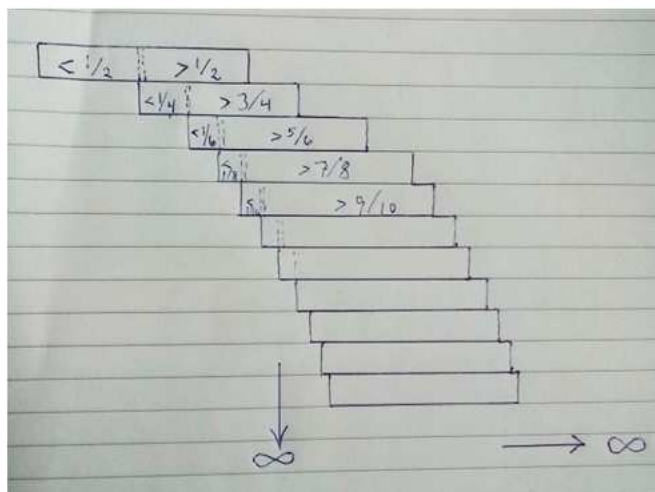 < 1/2 > 1/2
< 1/4 > 3/4
< 1/6 > 5/6
< 1/8 > 7/8
> 9/10
∞ ∞